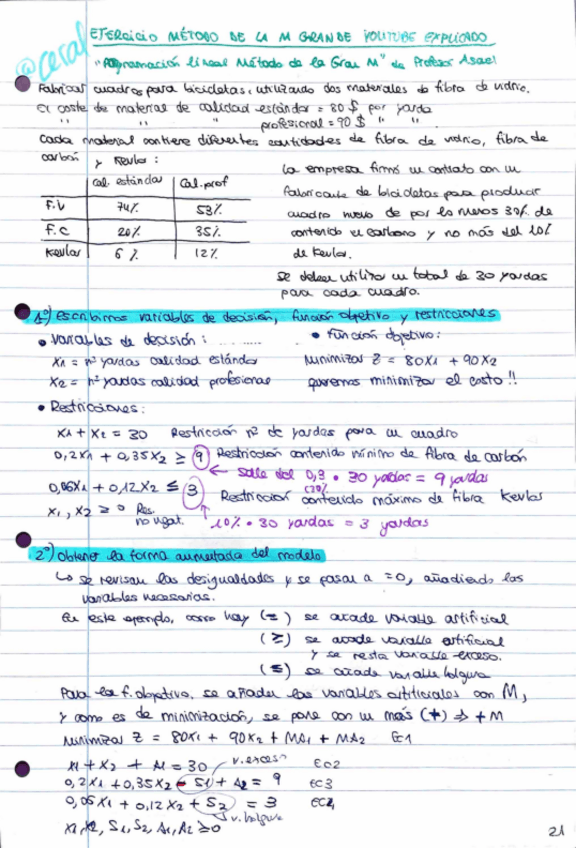 @ceral
EJERCICIO MÉTODO DE LA M GRANDE YOUTUBE EXPLICADO
"Programación lineal Método de la Gran M" de Profesor Asael
Fabricar cuadros para bicicletas, utilizando dos materiales de fibra de vidrio.
El coste de material de calidad estándar = 80 $ por yarda
" " " profesional = 90 $ " "
Cada material contiene diferentes cantidades de fibra de vidrio, fibra de
carbón y Kevlar:
Cal. estándar Cal. prof
F.V 74% 53%
F.C 20% 35%
Kevlar 6% 12%
La empresa firmó un contrato con un
fabricante de bicicletas para producir
cuadro nuevo de por lo menos 30% de
contenido en carbono y no más del 10%
de Kevlar.
Se deben utilizar un total de 30 yardas
para cada cuadro.
1º) Escribimos variables de decisión, función objetivo y restricciones
• Variables de decisión:
X1 = nº yardas calidad estándar
X2 = nº yardas calidad profesional
• Función objetivo:
Minimizar Z = 80X1 + 90X2
queremos minimizar el costo!!
• Restricciones:
X1 + X2 = 30 Restricción nº de yardas para un cuadro
0,2X1 + 0,35X2 ≥ 9 Restricción contenido mínimo de fibra de carbón
← Sale del 0,3 • 30 yardas = 9 yardas
(30%)
0,06X1 + 0,12X2 ≤ 3 Restricción contenido máximo de fibra Kevlar
X1, X2 ≥ 0 Res. no negat.
10% • 30 yardas = 3 yardas
2º) Obtener la forma aumentada del modelo
↳ se revisan las desigualdades y se pasan a =0, añadiendo las
variables necesarias.
En este ejemplo, como hay (=) se añade variable artificial
(≥) se añade variable artificial
y se resta variable exceso.
(≤) se añade variable holgura
Para la f. objetivo, se añaden las variables artificiales con M,
y como es de minimización, se pone con un más (+) ⇒ +M
Minimizar Z = 80X1 + 90X2 + MA1 + MA2 Ec1
X1 + X2 + A1 = 30 EC2
v. exceso
0,2X1 + 0,35X2 - S1 + A2 = 9 EC3
0,06X1 + 0,12X2 + S2 = 3 EC4
v. holgura
X1, X2, S1, S2, A1, A2 ≥ 0
21